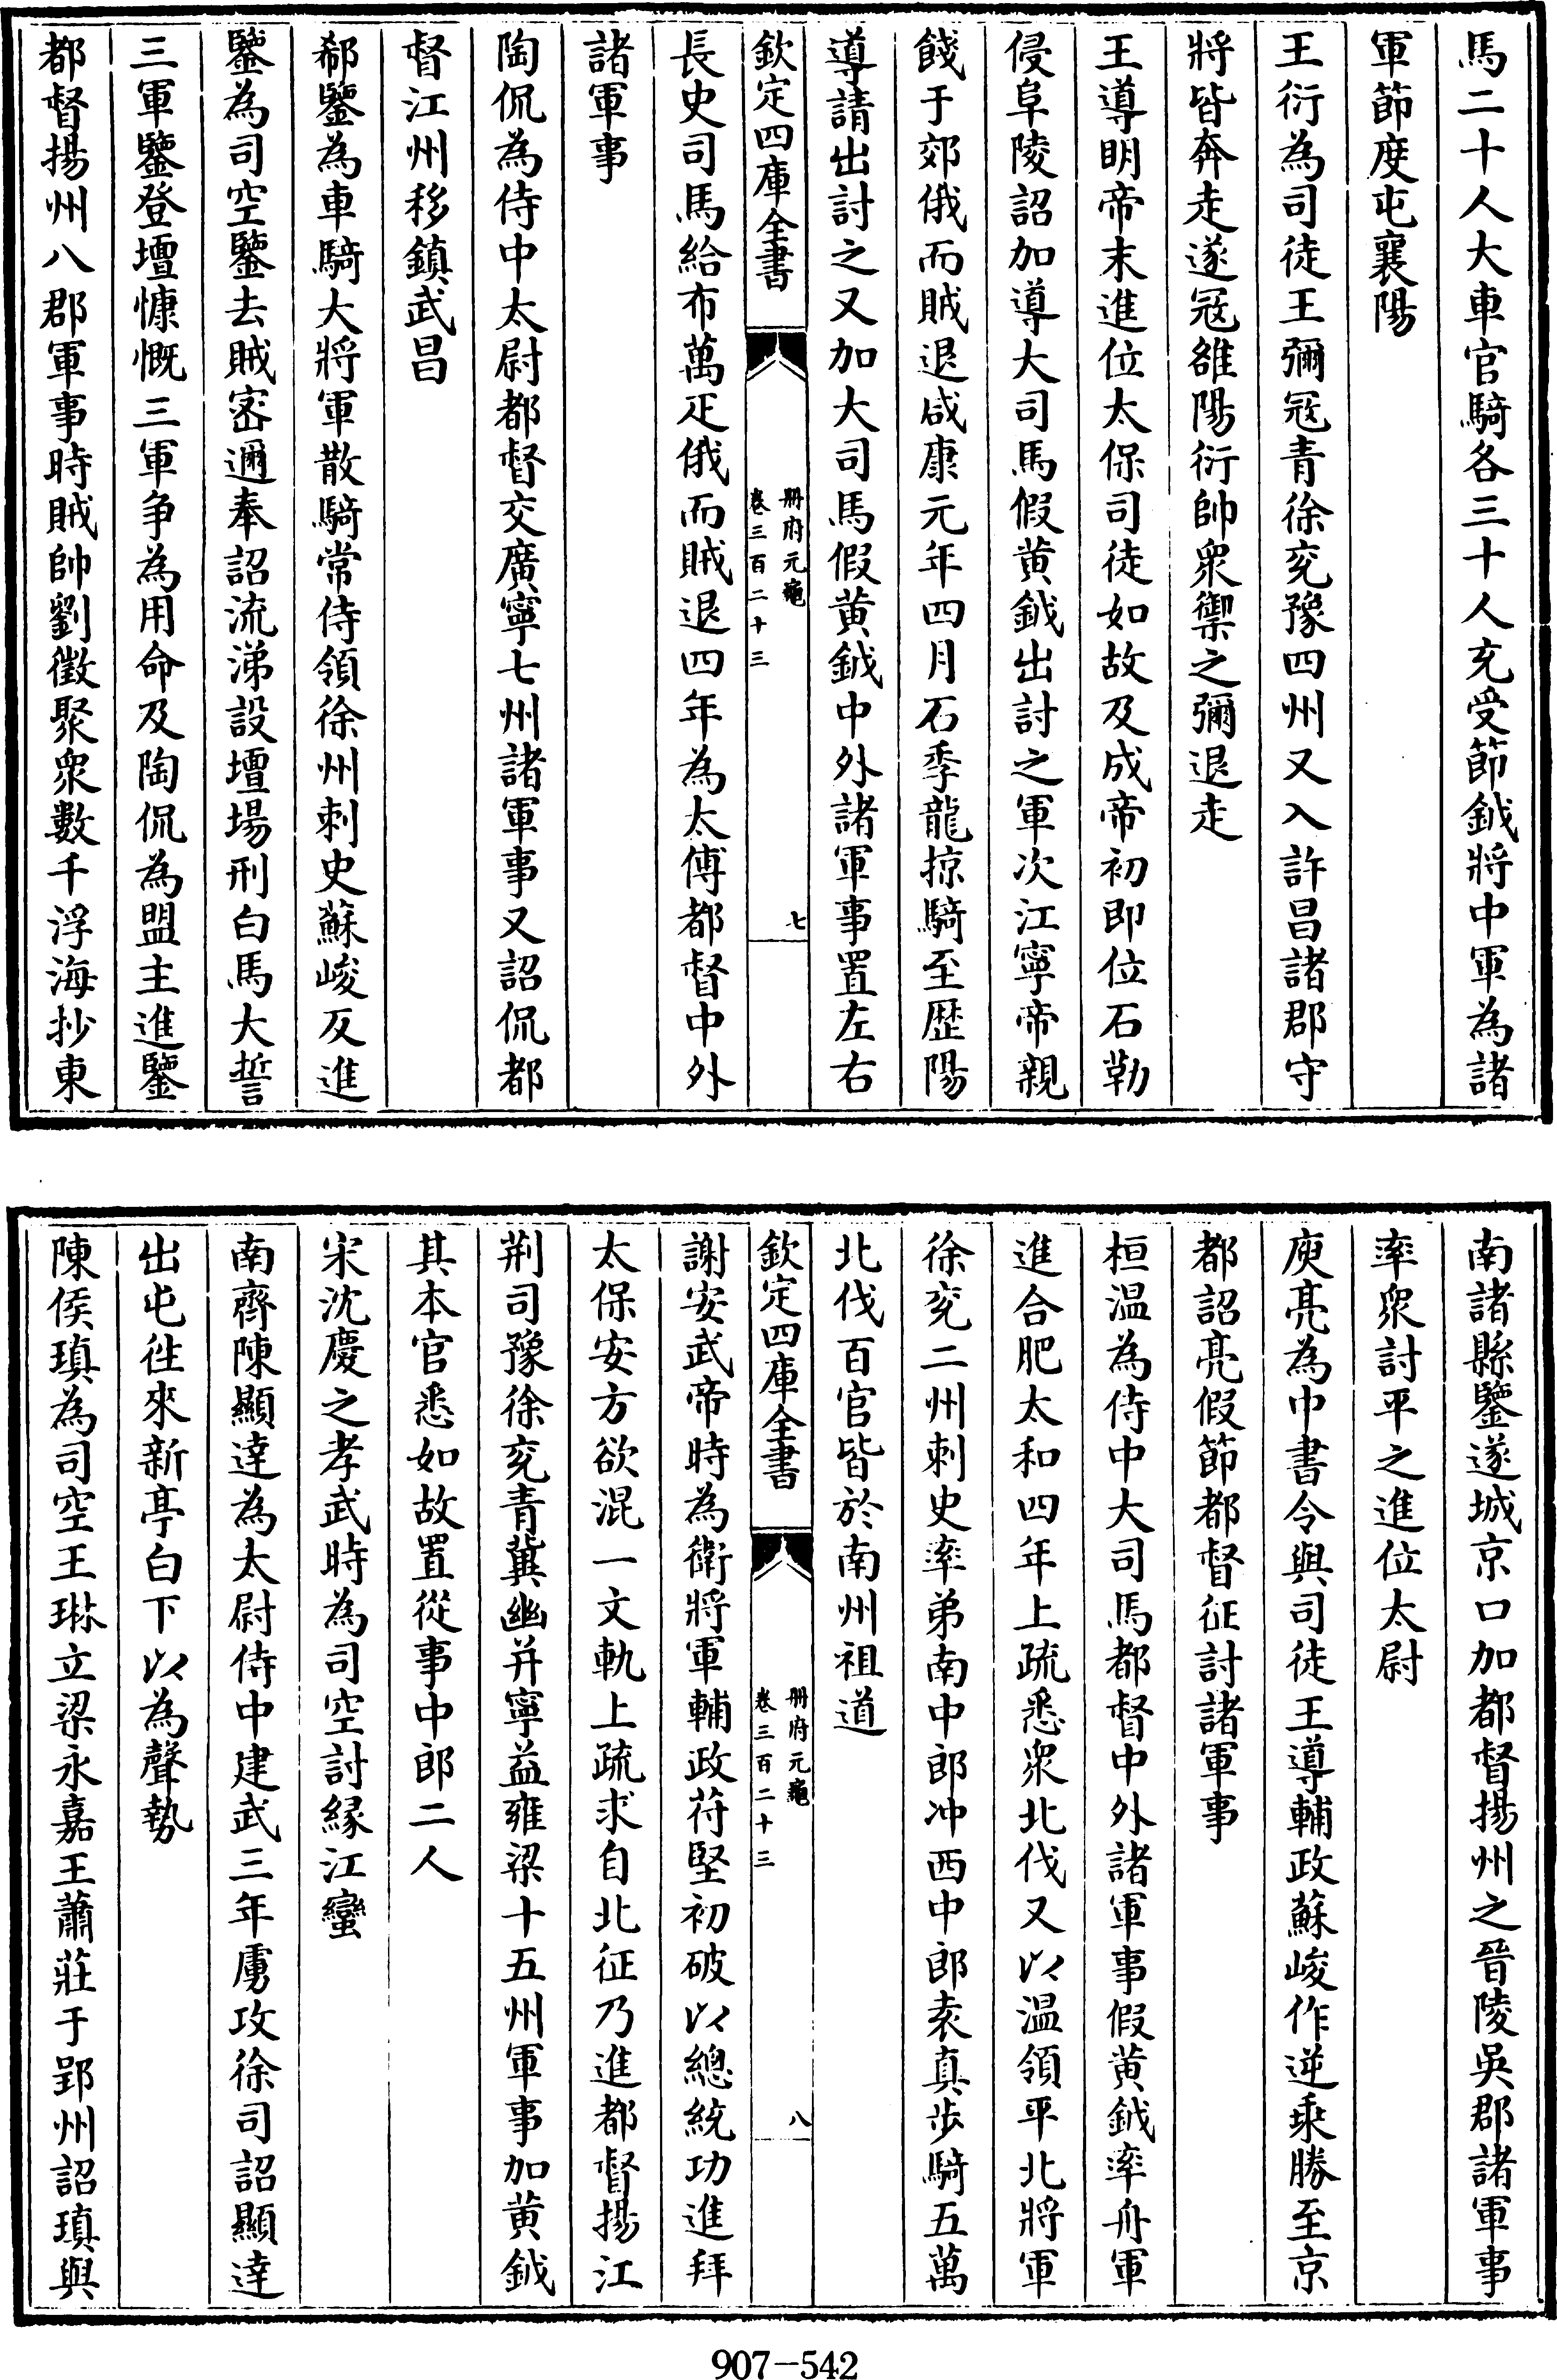 馬二十人大車官騎各三十人充受節鉞將中軍為諸
軍節度屯襄陽
王衍為司徒王彌寇青徐兖豫四州又入許昌諸郡守
將皆奔走遂寇雒陽衍帥衆禦之彌退走
王導明帝末進位太保司徒如故及成帝初即位石勒
侵阜陵詔加導大司馬假黄鉞出討之軍次江寧帝親
餞于郊俄而賊退咸康元年四月石季龍掠騎至歴陽
導請出討之又加大司馬假黄鉞中外諸軍事置左右
欽定四庫全書
册府元龜
卷三百二十三
七
長史司馬給布萬疋俄而賊退四年為太傅都督中外
諸軍事
陶侃為侍中太尉都督交廣寧七州諸軍事又詔侃都
督江州移鎮武昌
郗鑒為車騎大將軍散騎常侍領徐州刺史蘇峻反進
鑒為司空鑒去賊密邇奉詔流涕設壇場刑白馬大誓
三軍鑒登壇慷慨三軍争為用命及陶侃為盟主進鑒
都督揚州八郡軍事時賊帥劉徵聚衆數千浮海抄東
南諸縣鑒遂城京口加都督揚州之晉陵吳郡諸軍事
率衆討平之進位太尉
庾亮為中書令與司徒王導輔政蘇峻作逆乘勝至京
都詔亮假節都督征討諸軍事
桓温為侍中大司馬都督中外諸軍事假黄鉞率舟軍
進合肥太和四年上疏悉衆北伐又以温領平北將軍
徐兖二州刺史率弟南中郎冲西中郎袁真步騎五萬
北伐百官皆於南州祖道
欽定四庫全書
册府元龜
卷三百二十三
八
謝安武帝時為衛將軍輔政苻堅初破以總統功進拜
太保安方欲混一文軌上疏求自北征乃進都督揚江
荆司豫徐兖青冀幽并寧益雍梁十五州軍事加黄鉞
其本官悉如故置從事中郎二人
宋沈慶之孝武時為司空討緣江蠻
南齊陳顯達為太尉侍中建武三年虜攻徐司詔顯達
出屯徃來新亭白下以為聲勢
陳侯瑱為司空王琳立梁永嘉王蕭莊于郢州詔瑱與
907-542